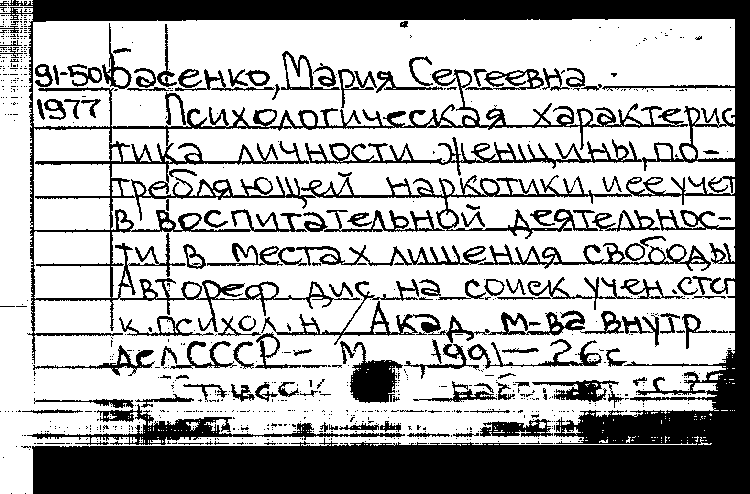 91-501 Басенко, Мария Сергеевна.
1977 Психологическая характерис
тика личности женщины, по-
требляющей наркотики, и ее учет
в воспитательной деятельнос-
ти в местах лишения свободы
Автореф. дис. на соиск. учен. степ
к. психол. н. / Акад. м-ва внутр
дел СССР - М., 1991 - 26 с.
Список работ